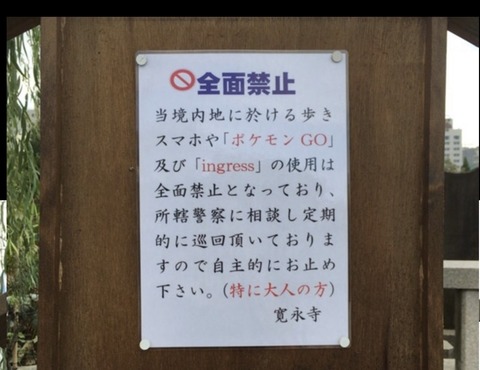 全面禁止
当境内地に於ける歩き
スマホや「ポケモンGO」
及び「ingress」の使用は
全面禁止となっており、
所轄警察に相談し定期
的に巡回頂いておりま
すので自主的にお止め
下さい。(特に大人の方)
寛永寺